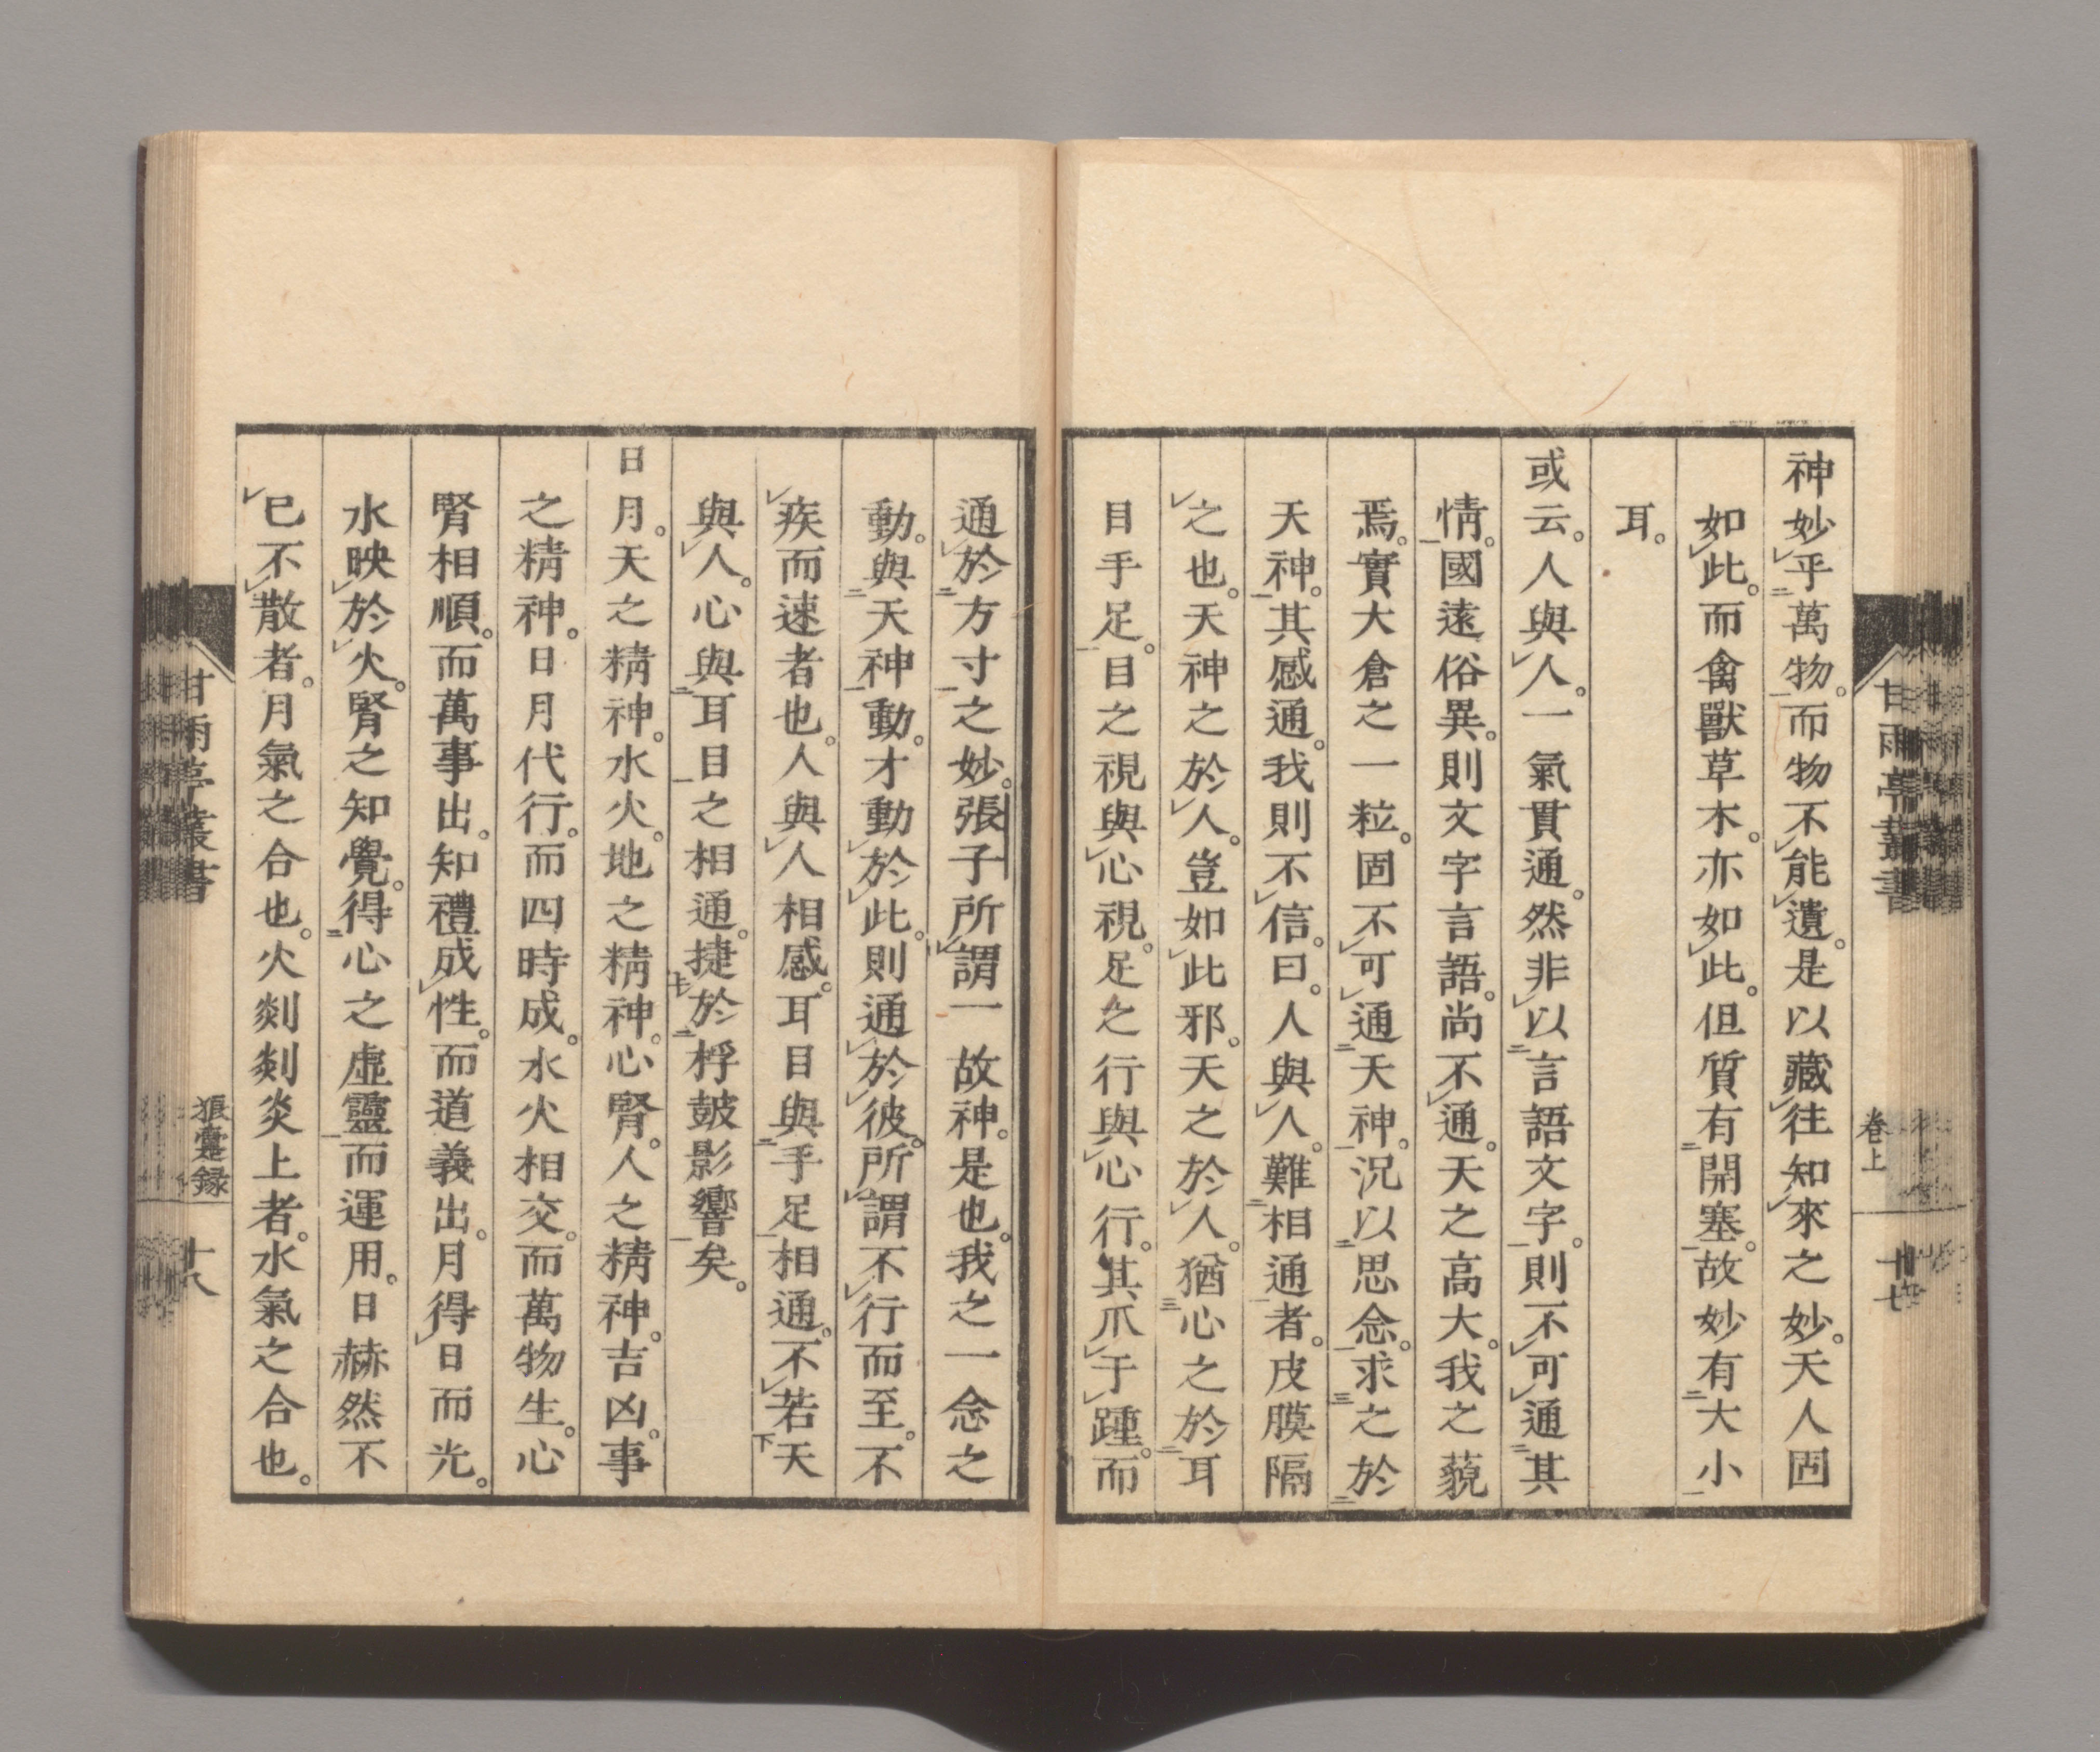 神妙乎萬物。而物不能遺。是以藏往知來之妙。天人固
如此。而禽獸草木。亦如此。但質有開塞。故妙有大小
耳。
或云。人與人。一氣貫通。然非以言語文字。則不可通其
情。國遠俗異。則文字言語。尚不通。天之高大。我之藐
焉。實大倉之一粒。固不可通天神。況以思念。求之於
天神。其感通。我則不信。曰。人與人。難相通者。皮膜隔
之也。天神之於人。豈如此邪。天之於人。猶心之於耳
目手足。目之視與心視。足之行與心行。其爪于踵。而
甘雨亭叢書
卷上
十七
通於方寸之妙。張子所謂一故神。是也。我之一念之
動。與天神動。才動於此。則通於彼。所謂不行而至。不
疾而速者也。人與人相感。耳目與手足相通。不若天
與人。心與耳目之相通。捷於桴皷影響矣。
日月。天之精神。水火。地之精神。心腎。人之精神。吉凶。事
之精神。日月代行。而四時成。水火相交。而萬物生。心
腎相順。而萬事出。知禮成性。而道義出。月得日而光。
水映於火。腎之知覺。得心之虛靈而運用。日赫然不
已不散者。月氣之合也。火剡剡炎上者。水氣之合也。
甘雨亭叢書
狼疐録
十八